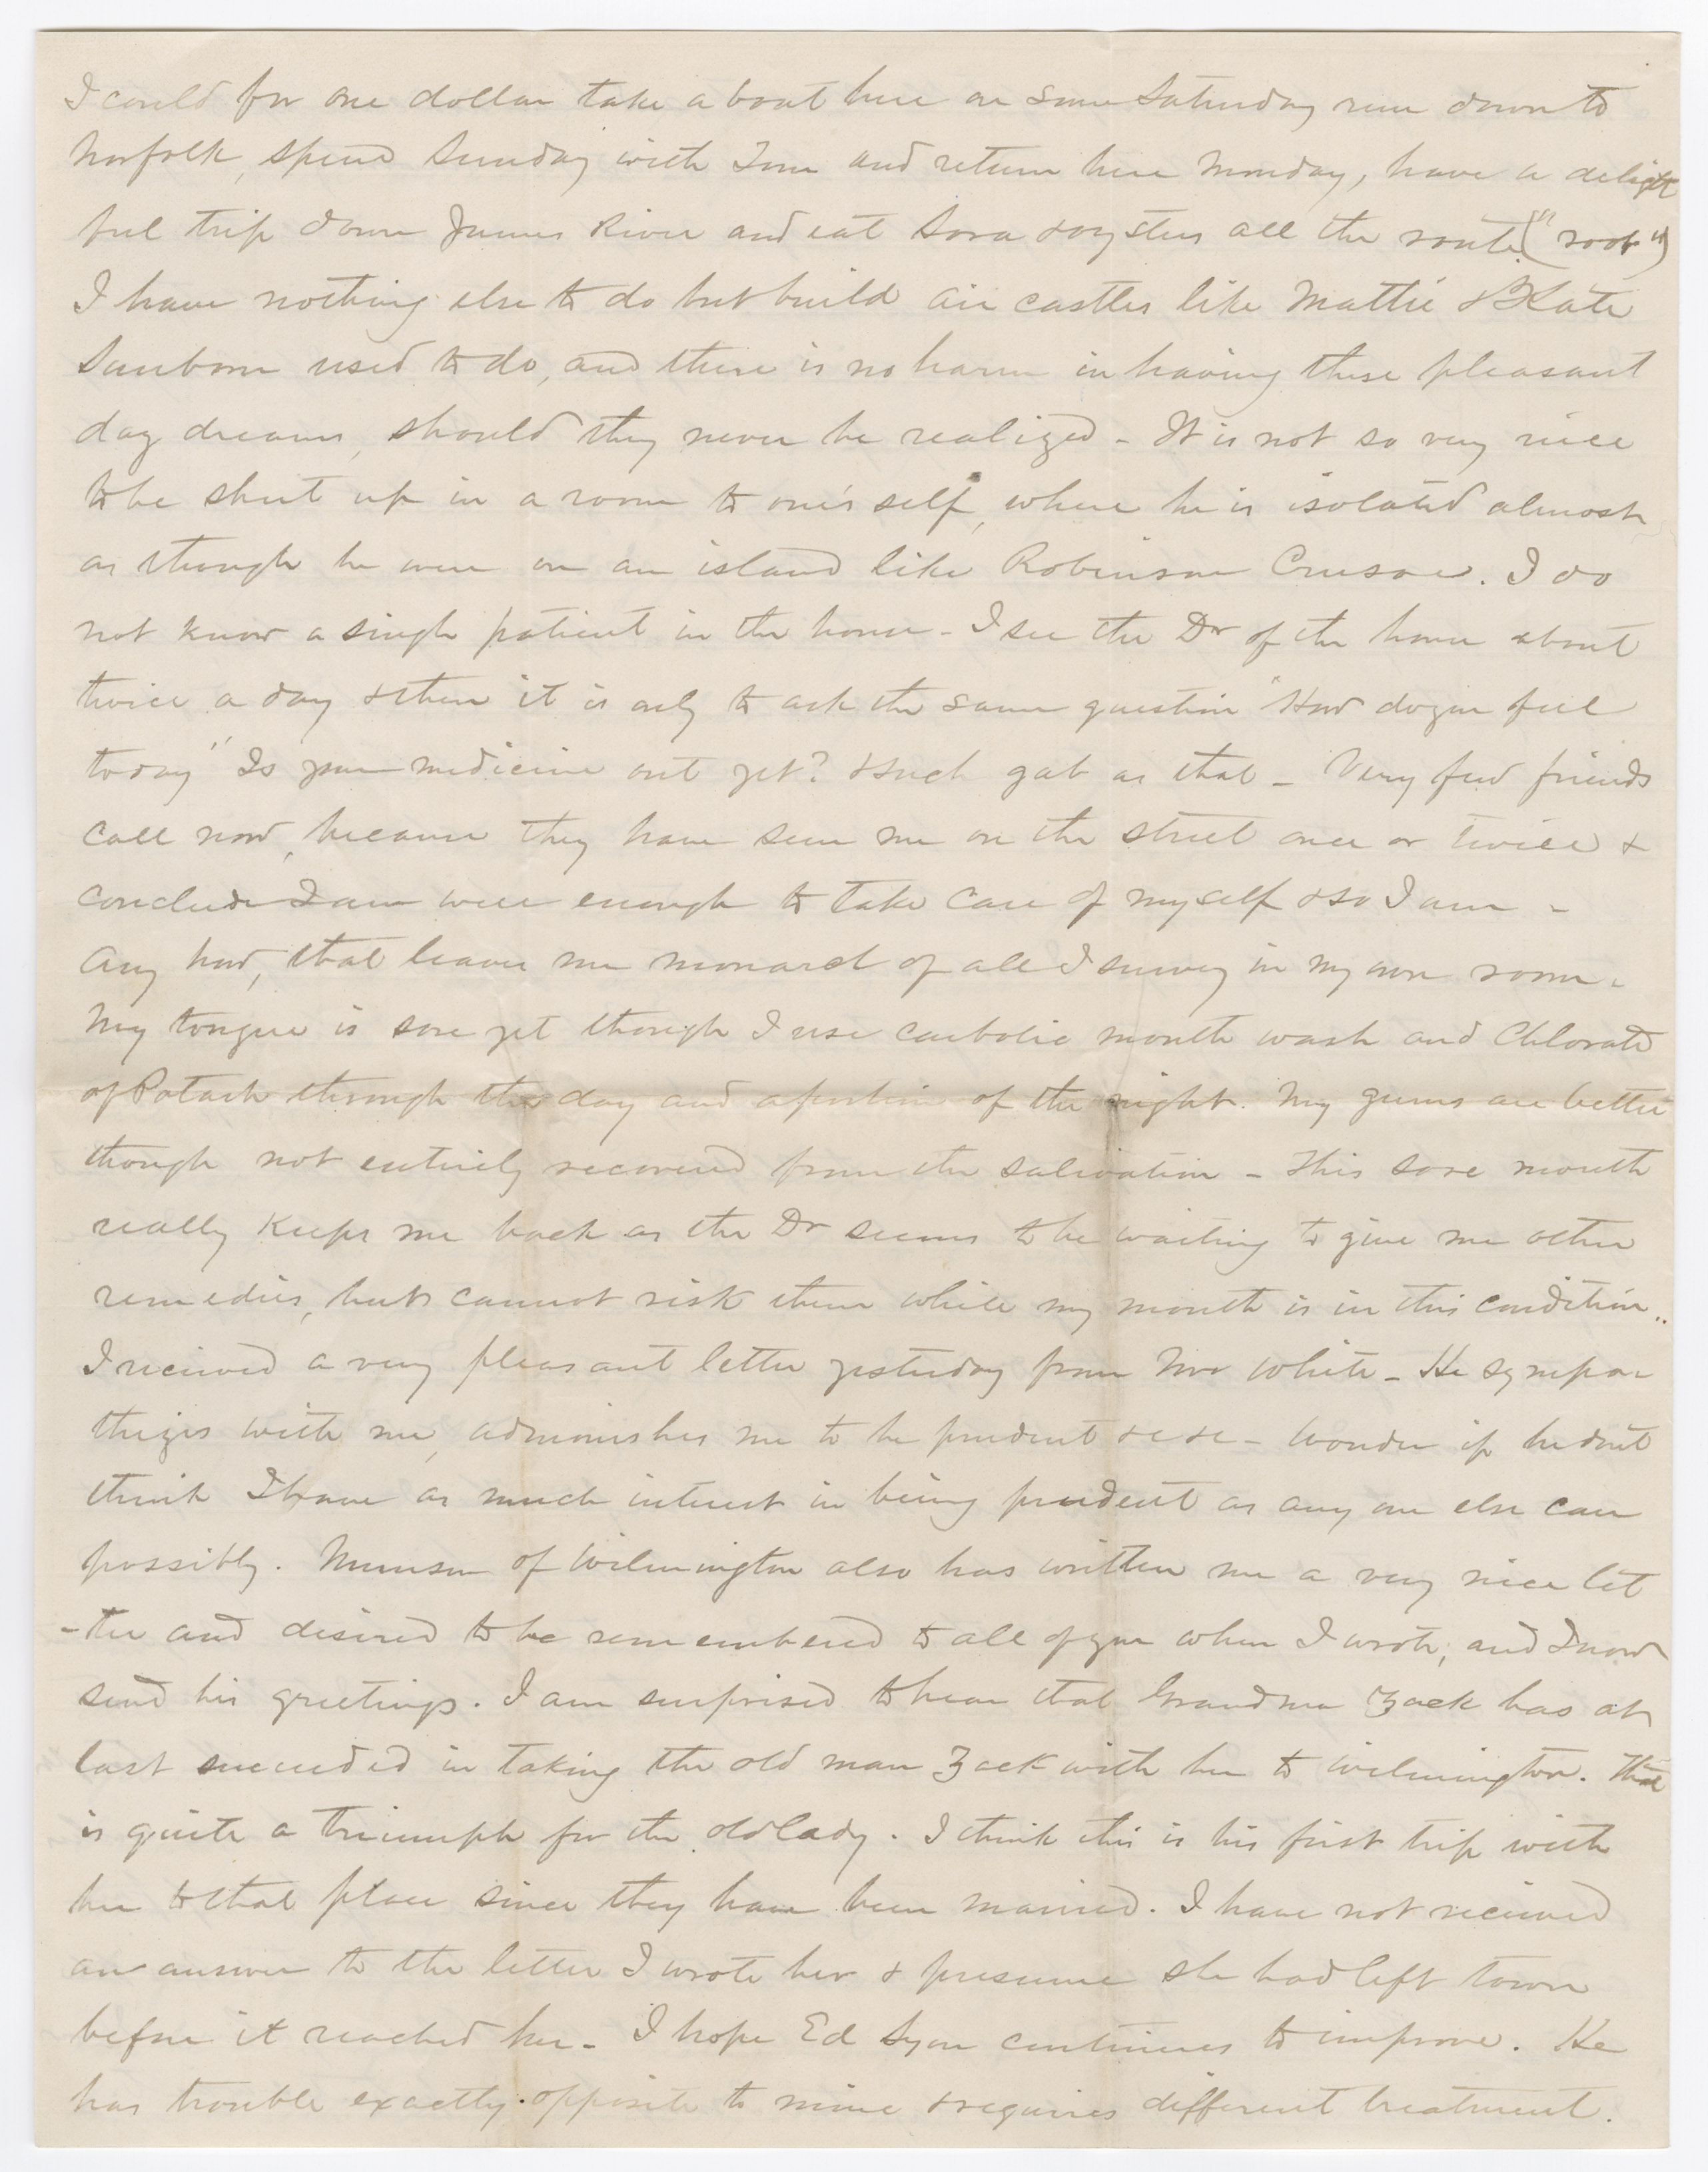 I could for one dollar take a boat here on some Saturday run down to
Norfolk, spend Sunday with Tom and return here Monday, have a delight
ful trip down James River and eat Sora & oysters all the route ("root")
I have nothing else to do but build air castles like Mattie & Kate
Sanborn used to do, and there is no harm in having these pleasant
day dreams, should they never be realized - It is not so very nice
to be shut up in a room to one's self, where he is isolated almost
as though he were on an island like Robinson Crusoe. I do
not know a single patient in the house - I see the Dr of the house about
twice a day & then it is only to ask the same question "How do you feel
today" Is your medicine out yet? & such gab as that - Very few friends
call now, because they have seen me on the street once or twice &
conclude I am well enough to take care of myself & so I am -
Any how, that leaves me monarch of all I survey in my own room -
My tongue is sore yet though I use carbolic mouth wash and Chlorate
of Potash through the day and a portion of the night. My gums are better
though not entirely recovered from the salivation - This sore mouth
really keeps me back as the Dr seems to be waiting to give me other
remedies, but cannot risk them while my mouth is in this condition..
I received a very pleasant letter yesterday from Mr White - He sympa-
thizes with me, admonishes me to be prudent &c &c - Wonder if he dont
think I have as much interest in being prudent as any one else can
possibly. Munson of Wilmington also has written me a very nice let
-ter and desired to be remembered to all of you when I wrote, and I now
send his greetings. I am surprised to hear that Grandma Zack has at
last succeeded in taking the old man Zack with her to Wilmington. That
is quite a triumph for the old lady. I think this is his first trip with
her to that place since they have been married. I have not received
an answer to the letter I wrote her & presume she had left town
before it reached her - I hope Ed Lyon continues to improve. He
has trouble exactly opposite to mine & requires different treatment.